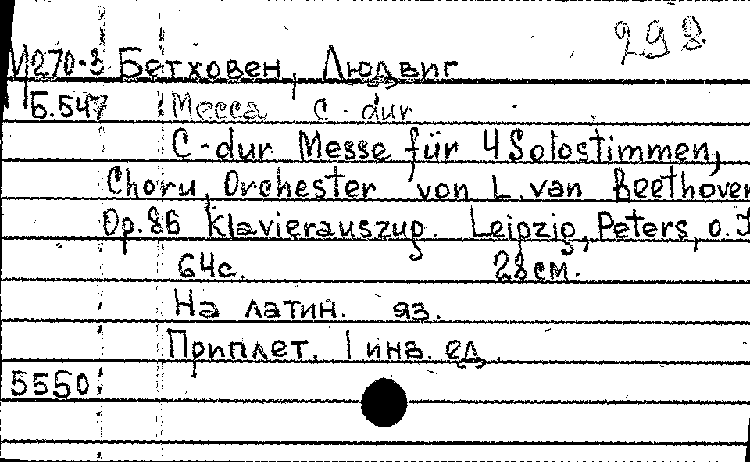 298
М270-3 Бетховен, Людвиг
Б.547 Месса C-dur
C-dur Messe für 4 Solostimmen,
Choru, Orchester von L. van Beethoven
Op. 86 Klavierauszug. Leipzig, Peters, o. J
64с. 28см.
На латин. яз.
Приплет. 1 инв. ед.
5550.